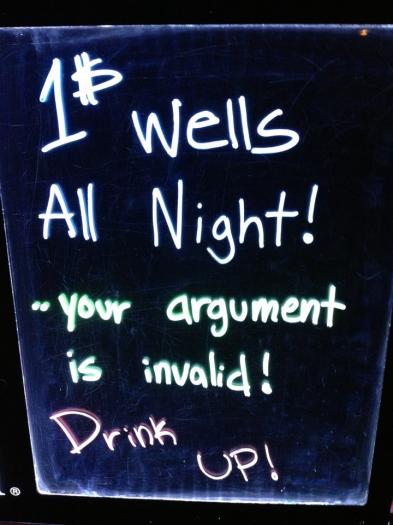 1$ Wells
All Night!
.. your argument
is invalid!
Drink
UP!
®